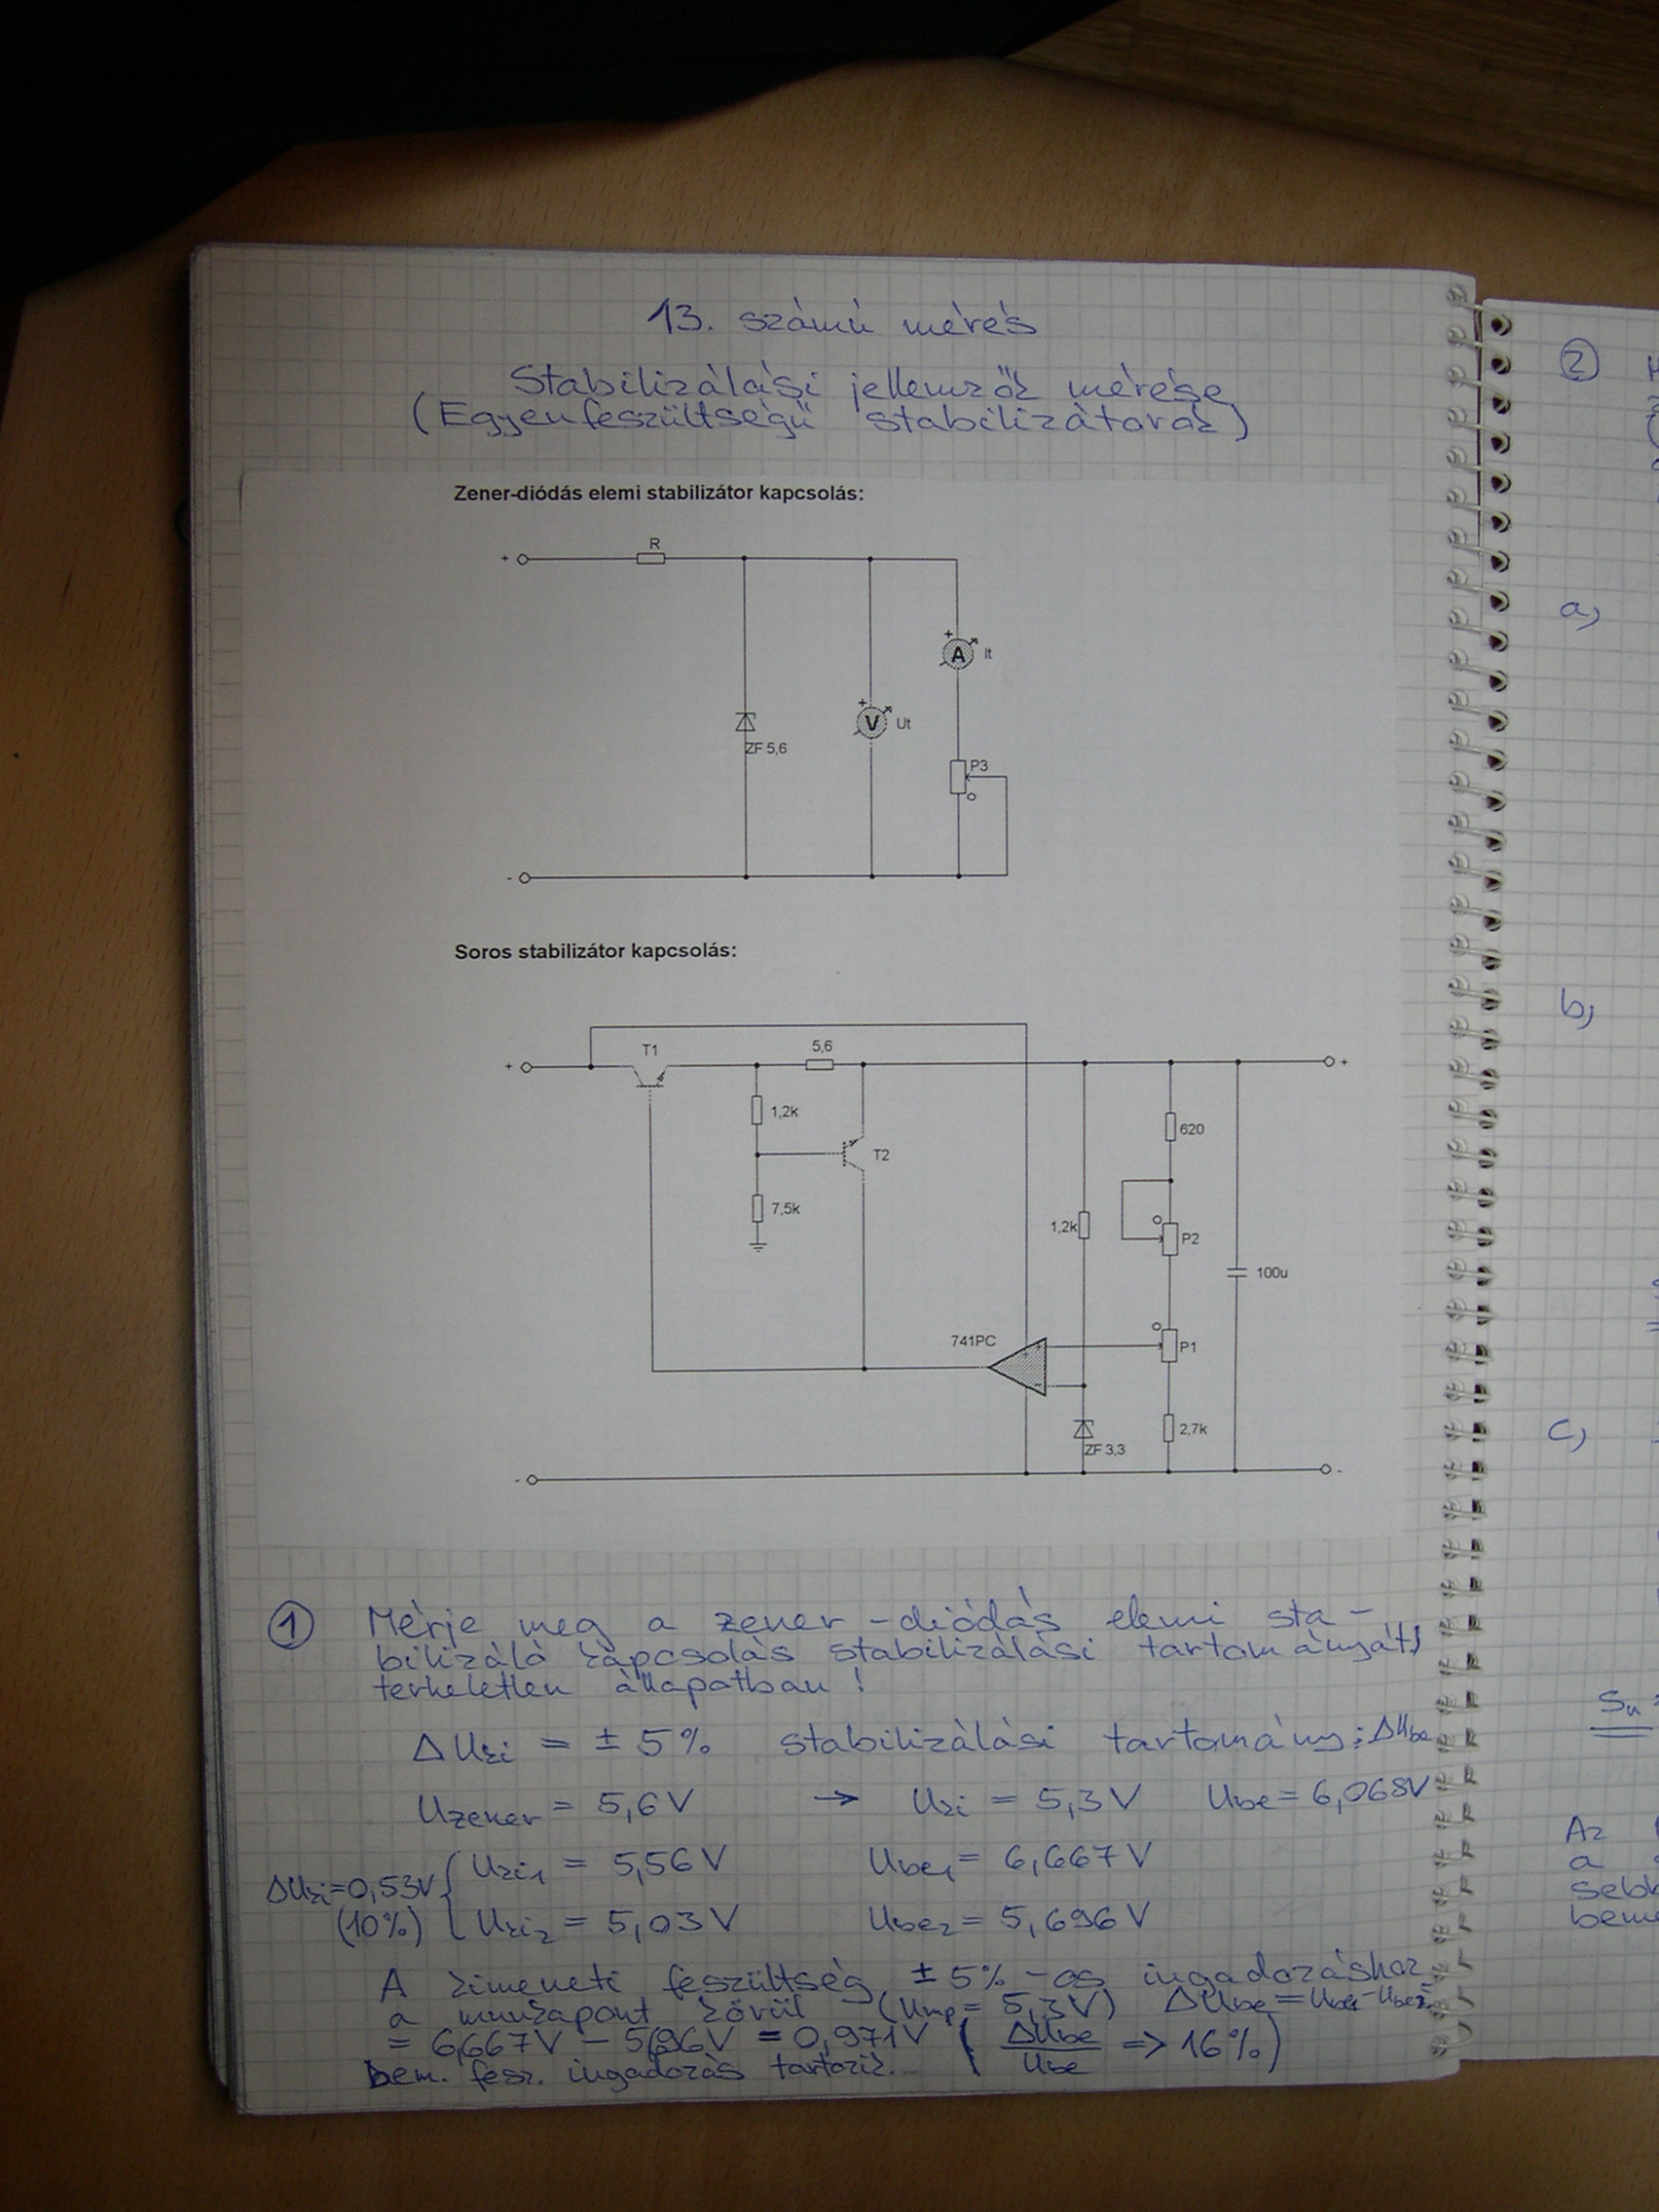 13. számú mérés
Stabilizálási jellemzők mérése
(Egyenfeszültségű stabilizátorok)
Zener-diódás elemi stabilizátor kapcsolás:
+
R
+
A
It
+
V
Ut
ZF 5,6
P3
-
Soros stabilizátor kapcsolás:
+
T1
5,6
+
1,2k
620
T2
7,5k
1,2k
P2
100u
741PC
+
P1
-
2,7k
ZF 3,3
-
-
1 Mérje meg a zener-diódás elemi sta-
bilizáló kapcsolás stabilizálási tartományát
terheletlen állapotban!
ΔUki = ± 5% stabilizálási tartomány: ΔUbe
Uzener = 5,6V → Uki = 5,3V Ube = 6,068V
Uki1 = 5,56V Ube1 = 6,667V
ΔUki=0,53V
(10%) Uki2 = 5,03V Ube2 = 5,696V
A kimeneti feszültség ± 5%-os ingadozáshoz
a munkapont körül (Ump = 5,3V) ΔUbe=Ube1-Ube2=
= 6,667V - 5,696V = 0,971V ( ΔUbe/Ube => 16%)
bem. fesz. ingadozás tartozik.
2
a)
b)
c)
Su
Az
a